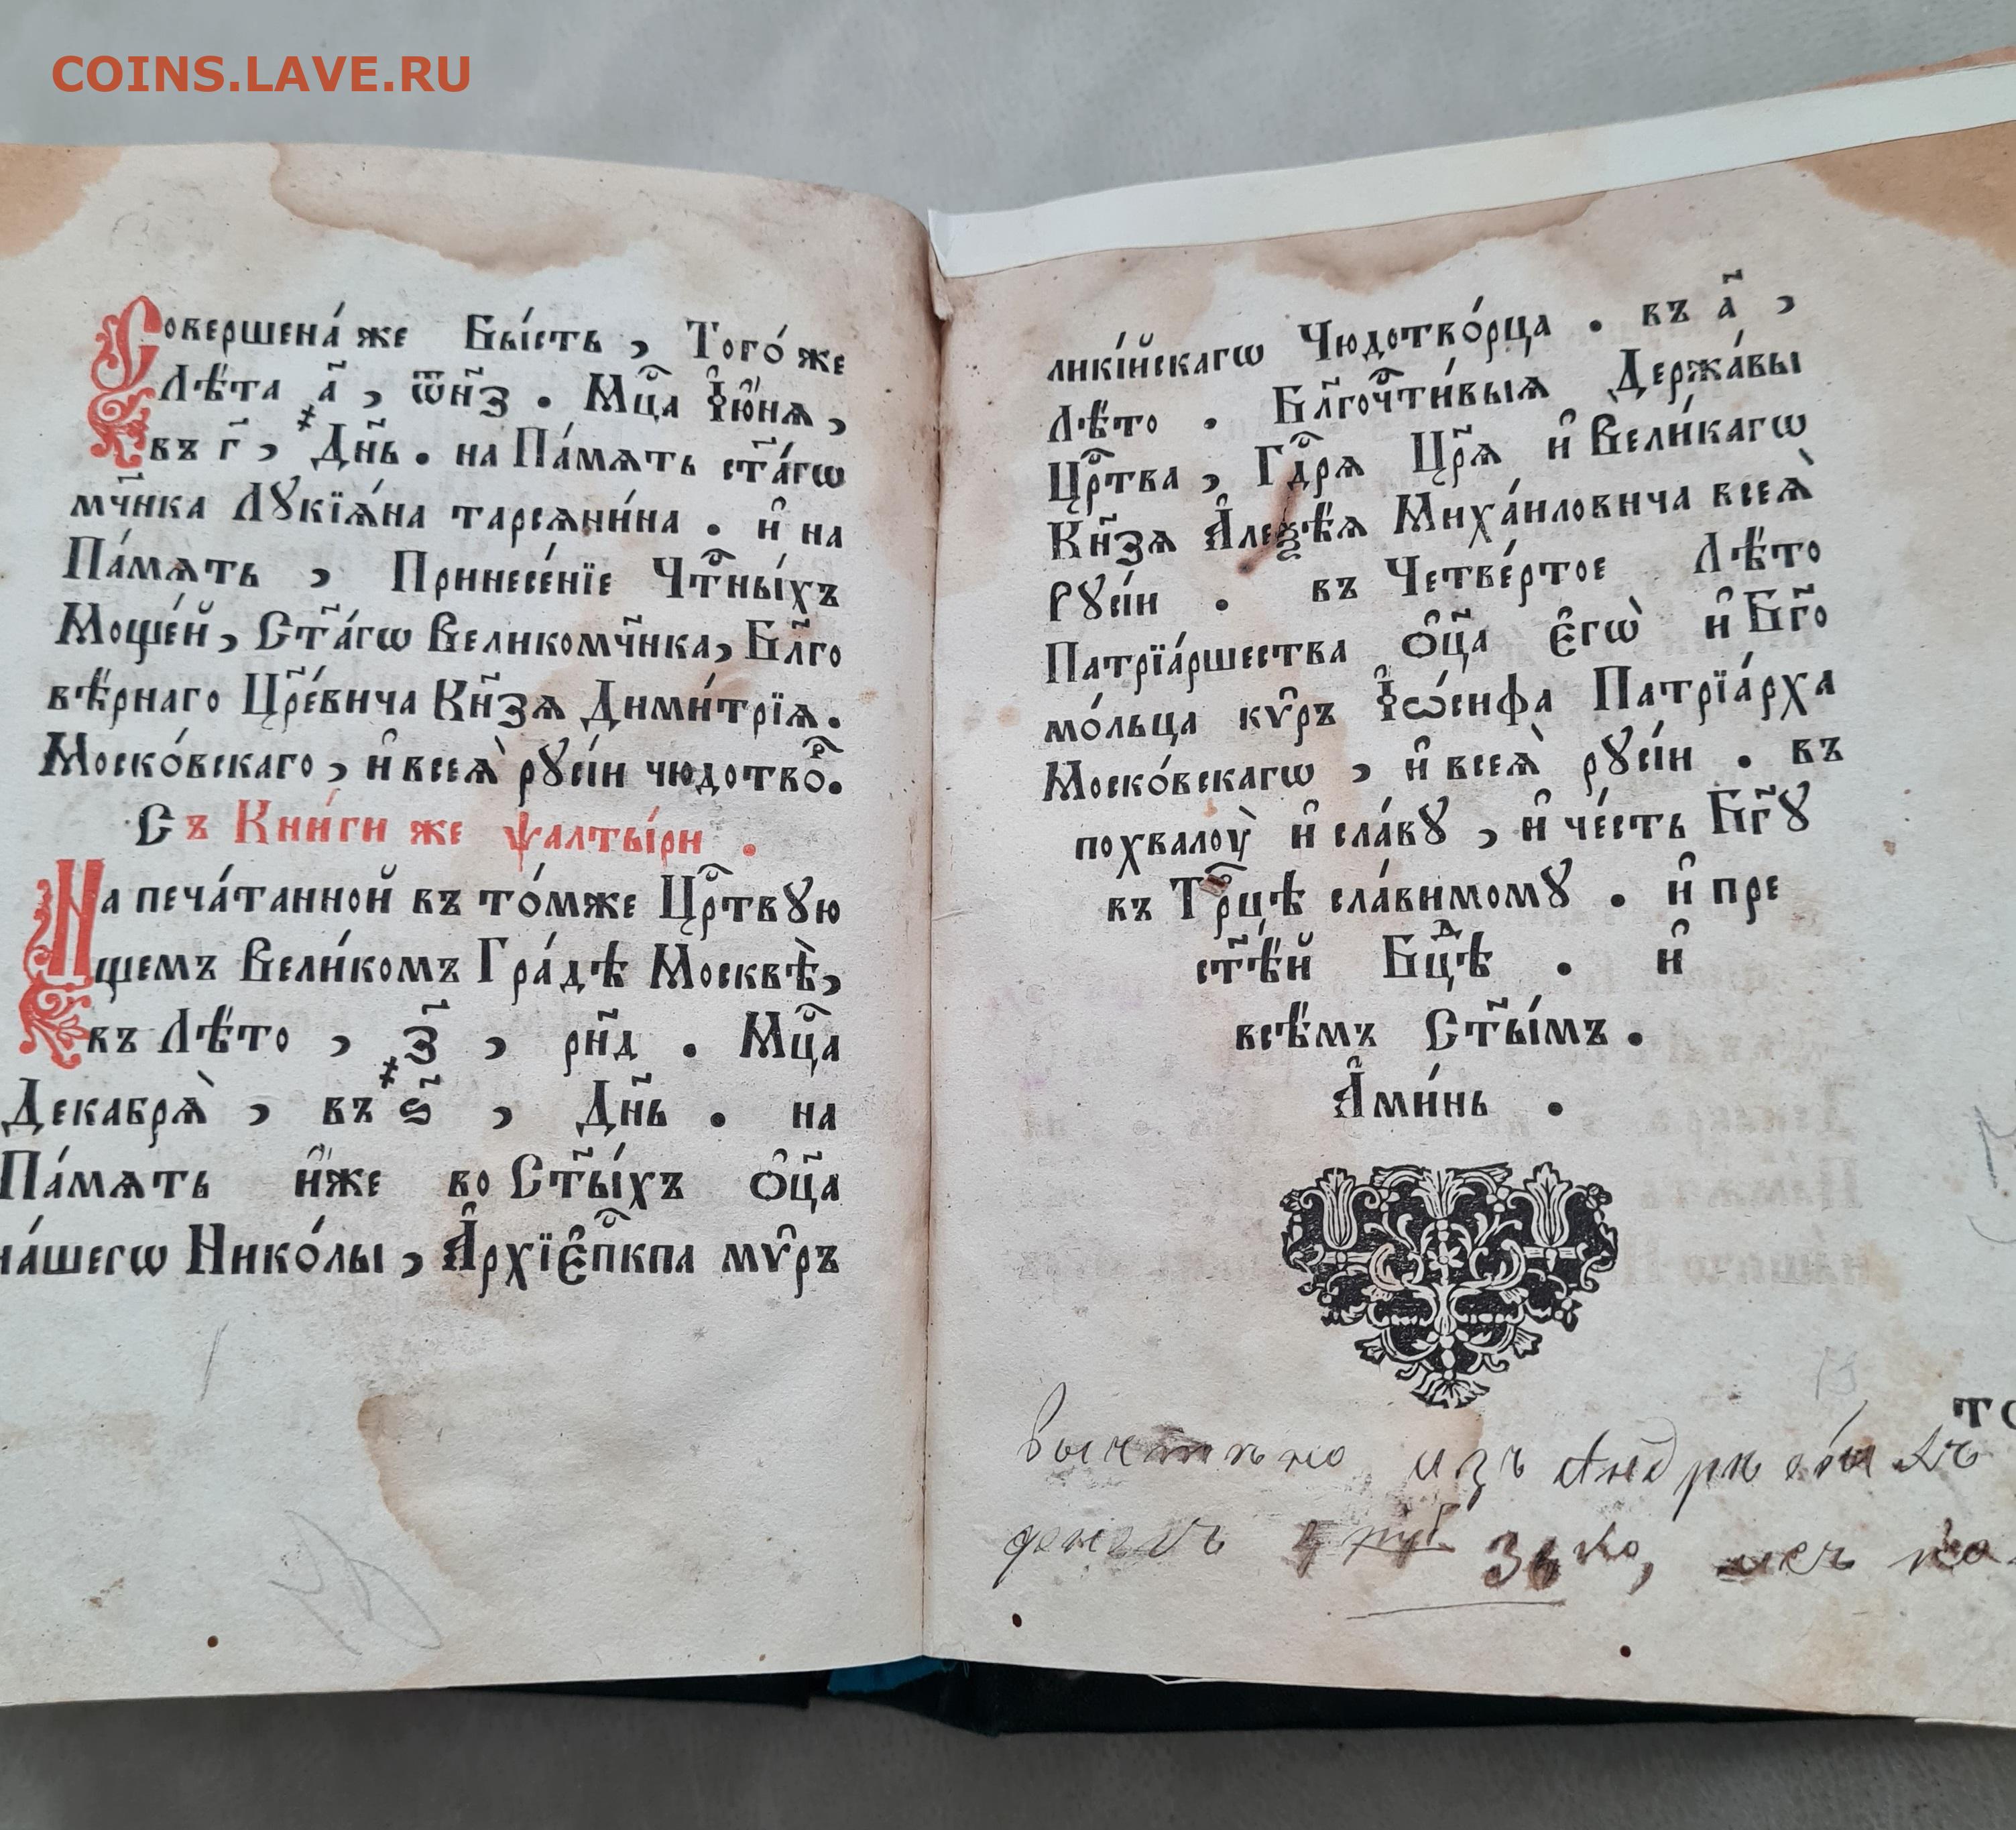 COINS.LAVE.RU
Совершена́ же Бы́сть , Того́ же
Лѣ́та ҂а҃ , ѿн҃з . Мц҇а І҆ю́нѧ ,
въ г҃ , Дн҃ь . на Па́мѧть ст҃а́гѡ
мч҃нка Лꙋкїѧ́на тарсѧни́на . и҆ на
Па́мѧть , Принесе́нїе Чт҇ны́хъ
Моще́й , Ст҃а́гѡ Великомч҃нка , Бл҃го
вѣ́рнаго Цр҃е́вича Кн҃зѧ Дими́трїѧ .
Моско́вскаго , и҆ всеѧ̀ рꙋсі́и чюдотво́ⷬ .
Съ Кни́ги же ѱалты́ри .
На печа́танной въ то́мже Цр҇твꙋю
щемъ Вели́комъ Гра́дѣ Москвѣ̀ ,
въ Лѣ́то , ҂з҃ , рн҃д . Мц҇а
Декабрѧ̀ , въ ѕ҃ , Дн҃ь . на
Па́мѧть и҆́же во Ст҃ы́хъ ѻ҆ц҃а
на́шегѡ Нико́лы , А҆рхїе҆п҇кпа мѵ҆ръ
ликі́йскагѡ Чюдотво́рца . въ а҃ ,
Лѣ́то . Бл҃гоч҇ти́выѧ Держа́вы
Цр҇тва , Гд҇рѧ Цр҃ѧ и҆ Вели́кагѡ
Кн҃зѧ А҆леѯѣ́ѧ Миха́иловича всеѧ̀
Рꙋсі́и . въ Четве́ртое Лѣ́то
Патрїа́ршества ѻ҆ц҃а є҆гѡ̀ и҆ Бг҃о
мо́льца кѵ҆ръ І҆ѡ́сифа Патрїа́рха
Моско́вскагѡ , и҆ всеѧ̀ рꙋсі́и . въ
похвалоу̀ и҆ сла́вꙋ , и҆ че́сть Бг҃ꙋ
въ Тр҇цѣ сла́вимомꙋ . и҆ пре
ст҃ѣ́й Бцⷣѣ . и҆
всѣ́мъ Ст҃ы́мъ .
А҆ми́нь .
изъ
денегъ 36 ко,